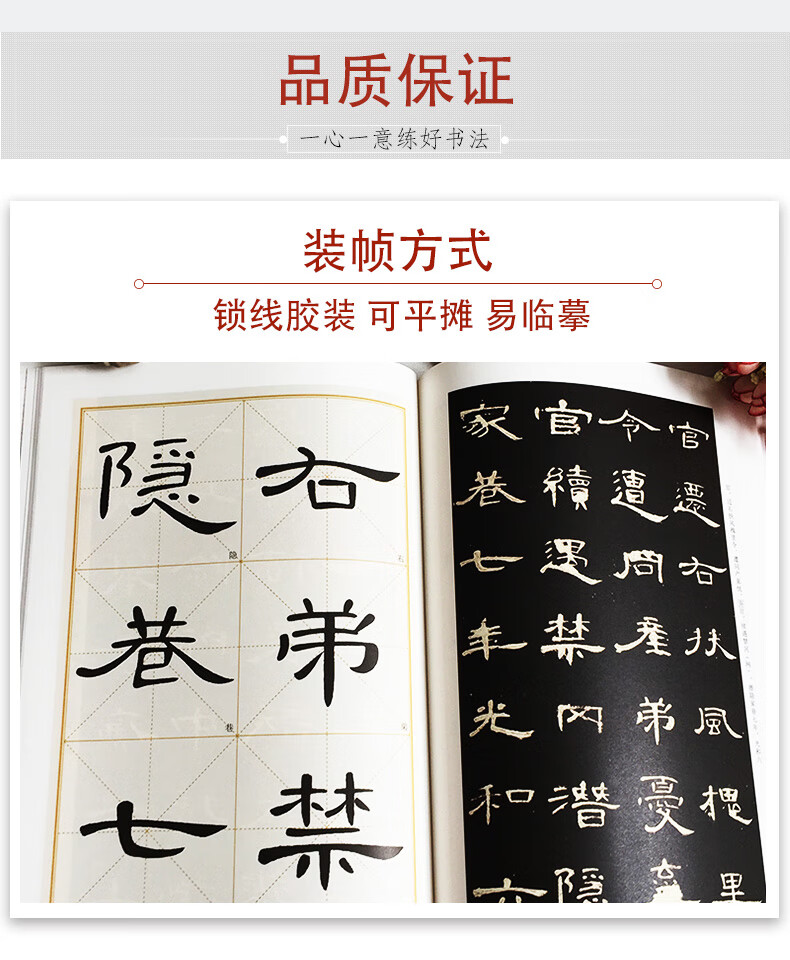 品质保证
一心一意练好书法
装帧方式
锁线胶装 可平摊 易临摹
右弟禁
隐巷七
隐
巷
官遷右扶風槐里
令遭同產弟憂
官續遇禁冈潛隱
家巷七年光和六